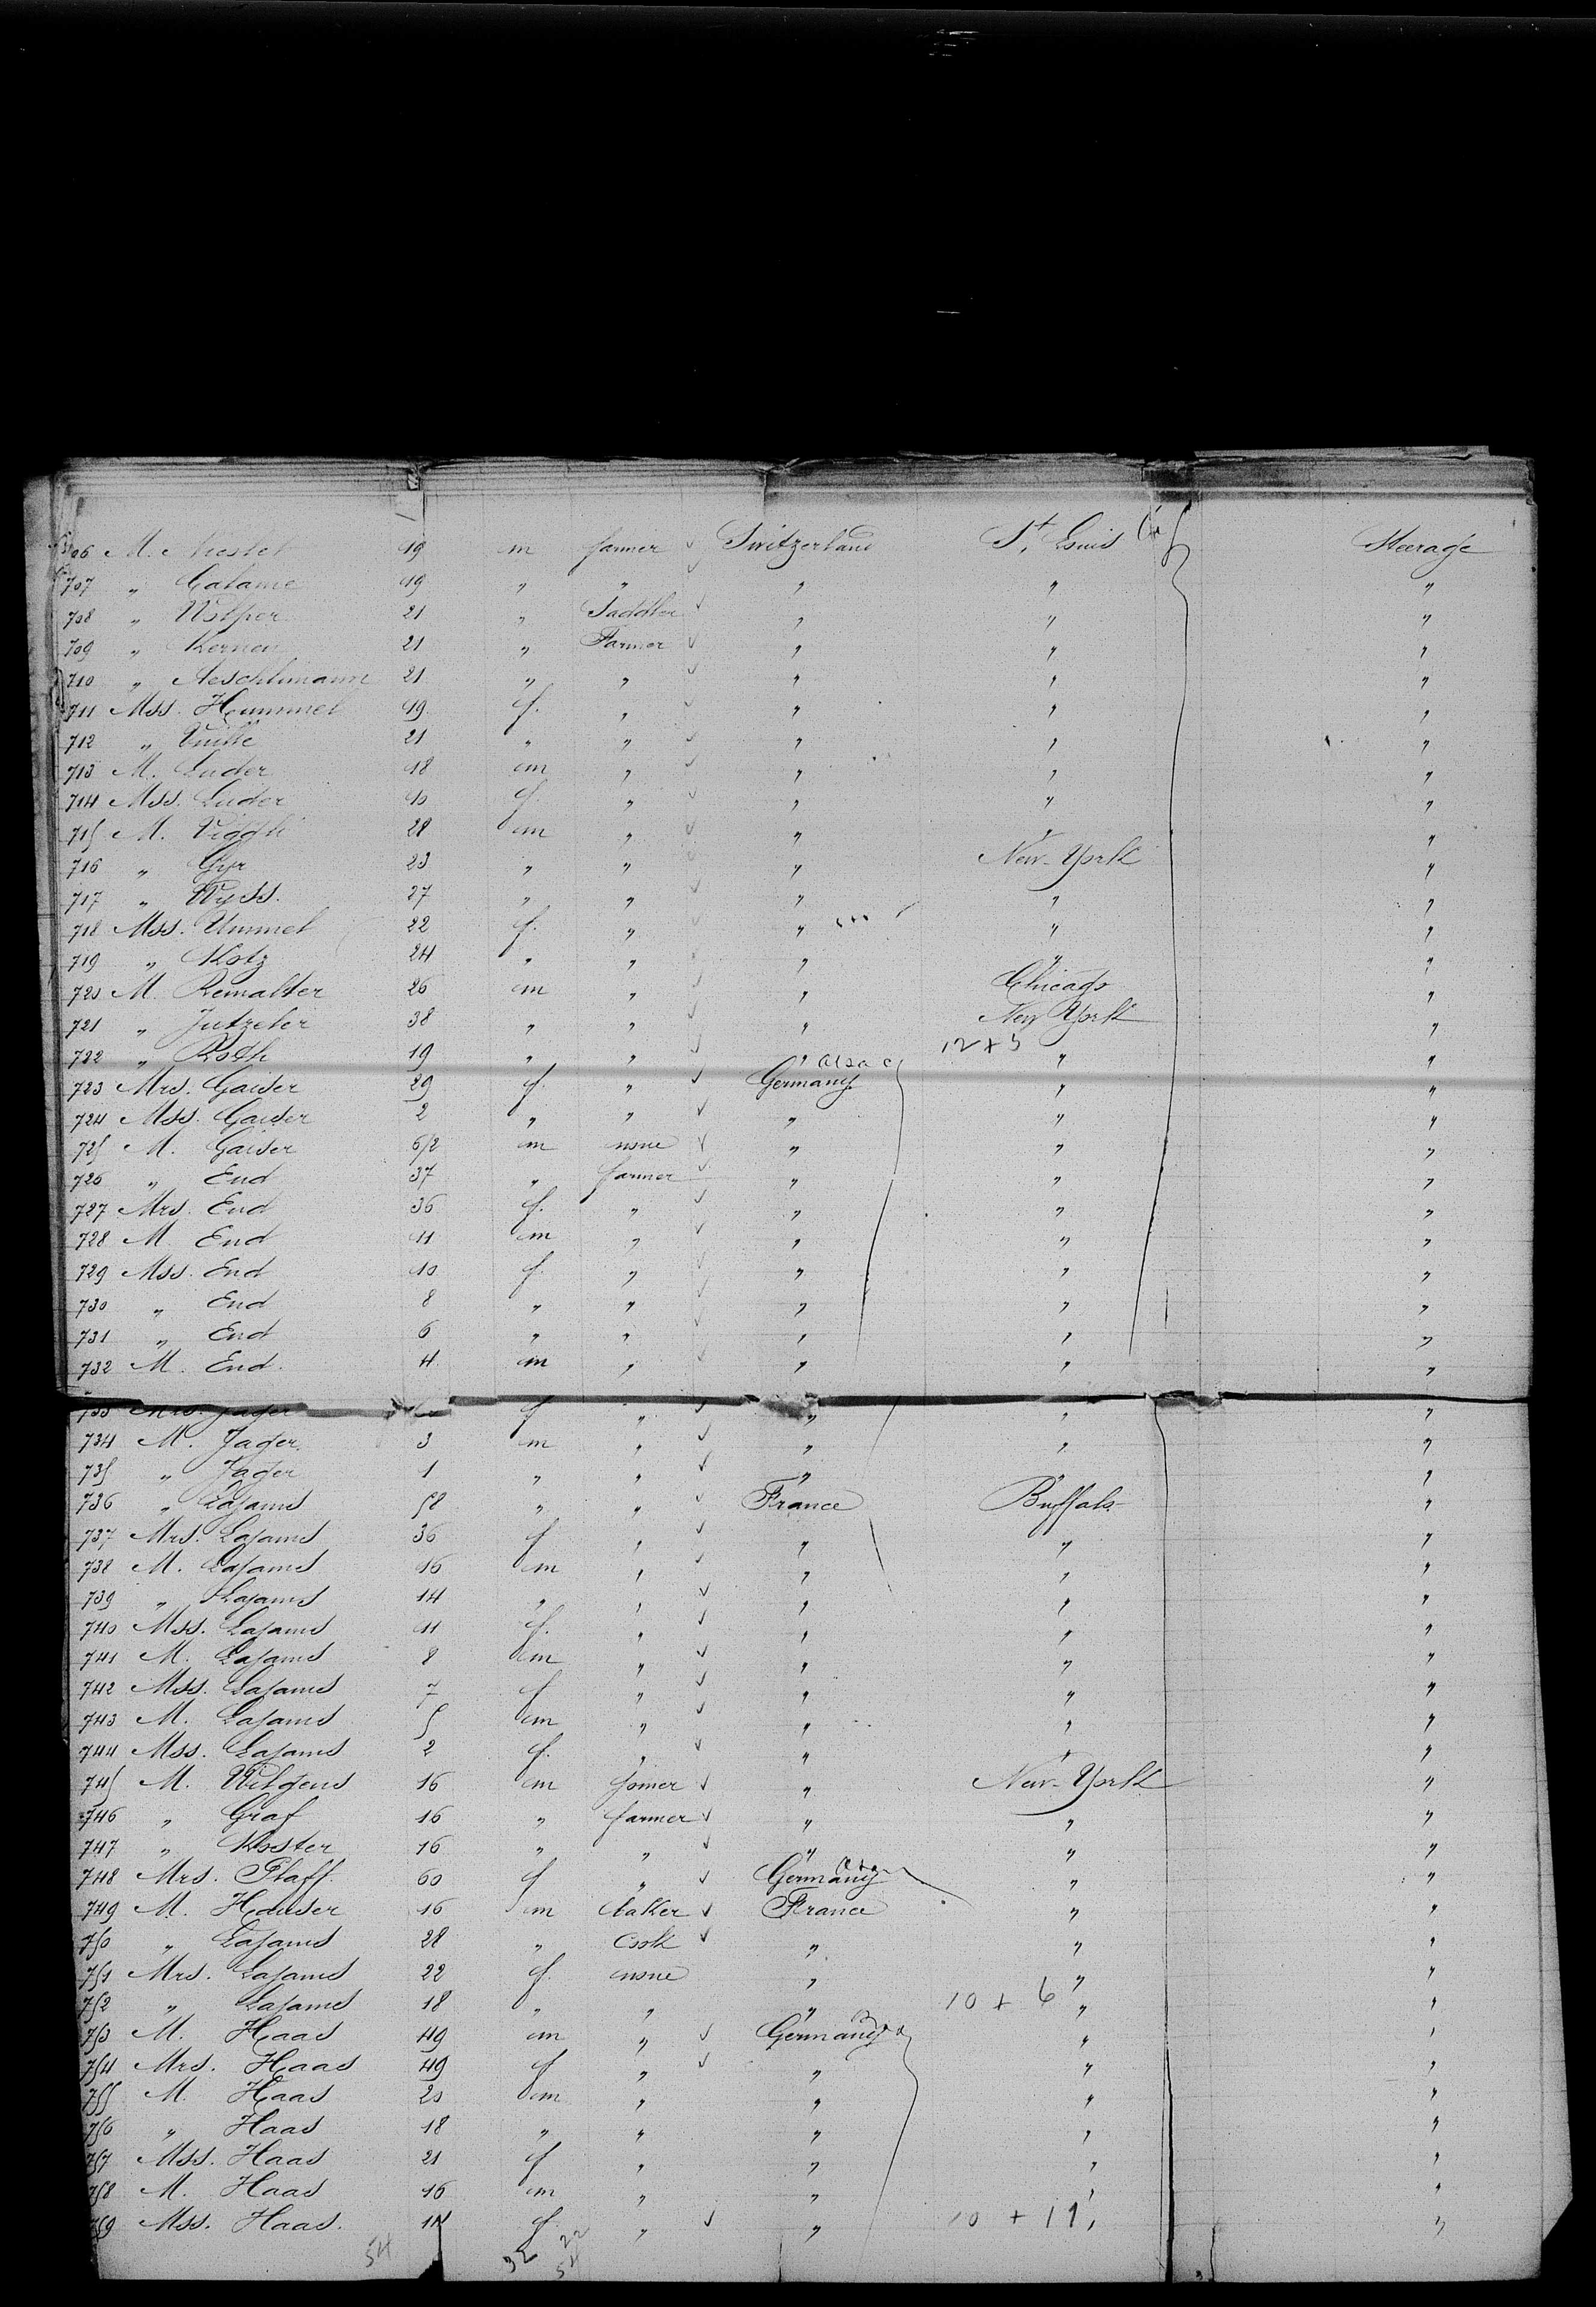 706 M. Nestel 19 m farmer ✓ Switzerland St. Louis Steerage
707 " Calame 19 " " ✓ " " "
708 " Wolper 21 " Saddler ✓ " " "
709 " Kernen 21 " Farmer ✓ " " "
710 " Aeschlimann 21 " " ✓ " " "
711 Mss. Hummel 19 f. " ✓ " " "
712 " Vuille 21 " " ✓ " " "
713 M. Luder 18 m " ✓ " " "
714 Mss. Luder 10 f. " ✓ " " "
715 M. Viggli 28 m " ✓ " " "
716 " Gyr 23 " " ✓ " New-York "
717 " Wyss. 27 " " ✓ " " "
718 Mss. Ummel 22 f. " ✓ " " "
719 " Kotz 24 " " ✓ " " "
720 M. Remalter 26 m " ✓ " Chicago "
721 " Jutzeler 38 " " ✓ " New York "
722 " Roth 19 " " ✓ " 12 + 5 " "
Alsac
723 Mrs. Gaiser 29 f. " ✓ Germany " "
724 Mss. Gaiser 2 " " ✓ " " "
725 M. Gaiser 6/2 m none ✓ " " "
726 " End 37 " farmer ✓ " " "
727 Mrs. End 36 f. " ✓ " " "
728 M. End 11 m " ✓ " " "
729 Mss. End 10 f. " ✓ " " "
730 " End 8 " " ✓ " " "
731 " End 6 " " ✓ " " "
732 M. End. 4 m " ✓ " " "
733 Mrs. Jager f " ✓ " " "
734 M. Jager. 3 m " ✓ " " "
735 " Jager 1 " " ✓ " " "
736 " Lajams 58 " " ✓ France Buffalo. "
737 Mrs. Lajams 36 f " ✓ " " "
738 M. Lajams 16 m " ✓ " " "
739 " Lajams 14 " " ✓ " " "
740 Mss. Lajams 11 f. " ✓ " " "
741 M. Lajams 8 m " ✓ " " "
742 Mss. Lajams 7 f " ✓ " " "
743 M. Lajams 5 m " ✓ " " "
744 Mss. Lajams 2 f. " ✓ " " "
745 M. Wilgens 16 m joiner ✓ " New-York "
746 " Graf 16 " farmer ✓ " " "
747 " Koster 16 " " ✓ " " "
748 Mrs. Plaff. 60 f " ✓ Germany " "
749 M. Houser 16 m baker ✓ France " "
750 " Lajams 28 " Cook ✓ " " "
751 Mrs. Lajams 22 f. none " " "
752 " Lajams 18 " " " 10 + 6 " "
753 M. Haas 49 m " ✓ Germany " "
754 Mrs. Haas 49 f " ✓ " " "
755 M. Haas 20 m " " " "
756 " Haas 18 " " " " "
757 Mss. Haas 21 f " " " "
758 M. Haas 16 m " " " "
759 Mss. Haas. 14 f. " ✓ " 10 + 11 " "
54 32 22
54